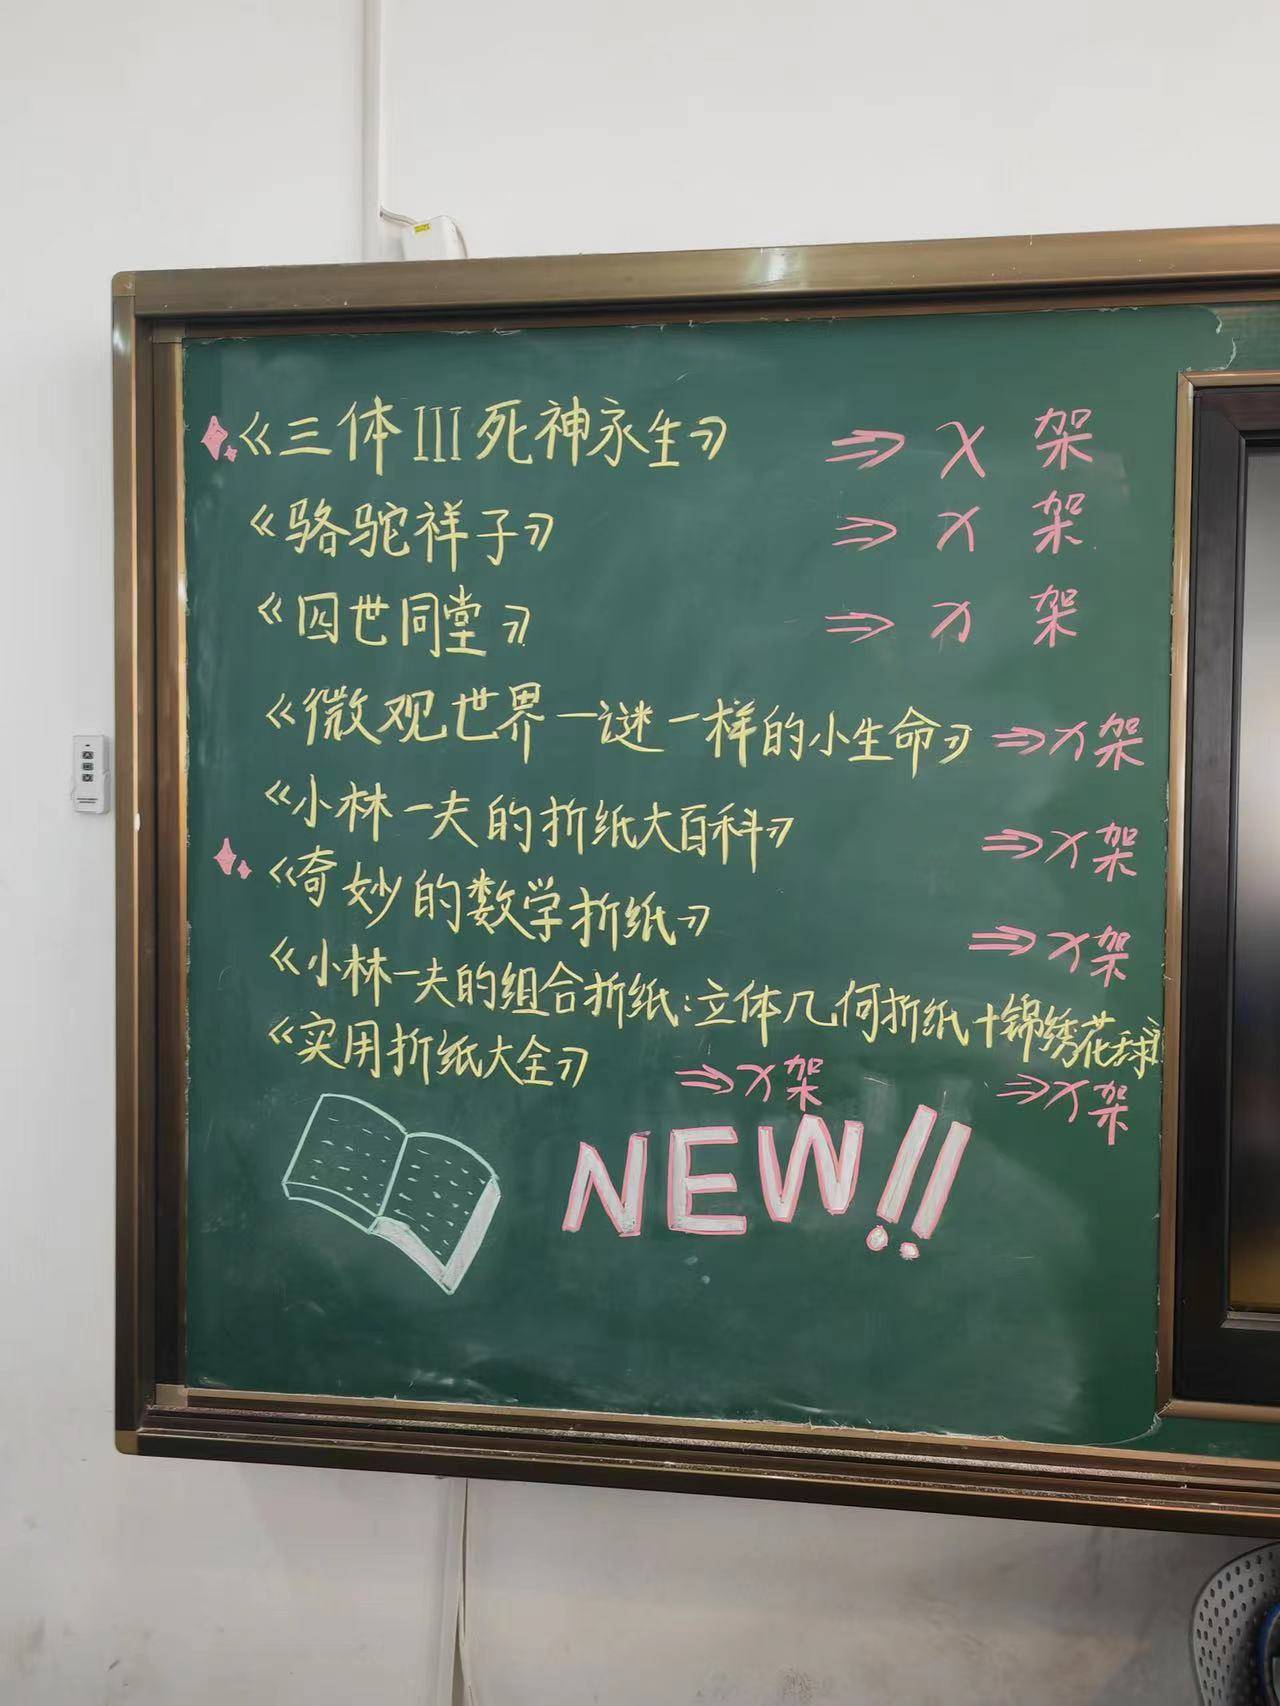 《三体III死神永生》 ⇒ X 架
《骆驼祥子》 ⇒ X 架
《四世同堂》 ⇒ X 架
《微观世界一谜一样的小生命》 ⇒ X架
《小林一夫的折纸大百科》 ⇒ X架
《奇妙的数学折纸》 ⇒ X架
《小林一夫的组合折纸:立体几何折纸+锦绣花球》 ⇒ X架
《实用折纸大全》 ⇒ X架
NEW!!